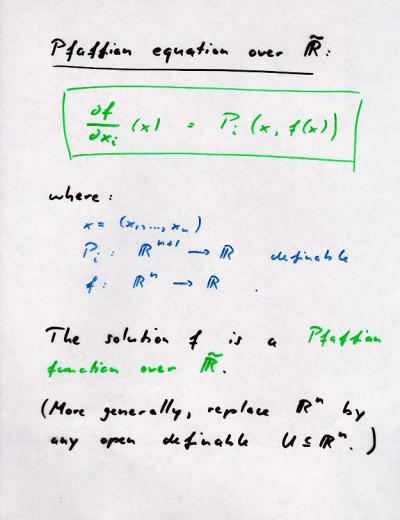 Pfaffian equation over ℝ̃:
∂f/∂xᵢ (x) = Pᵢ (x, f(x))
where:
x = (x₁,..., xₙ)
Pᵢ : ℝⁿ⁺¹ → ℝ definable
f : ℝⁿ → ℝ .
The solution f is a Pfaffian
function over ℝ̃.
(More generally, replace ℝⁿ by
any open definable U ⊆ ℝⁿ.)